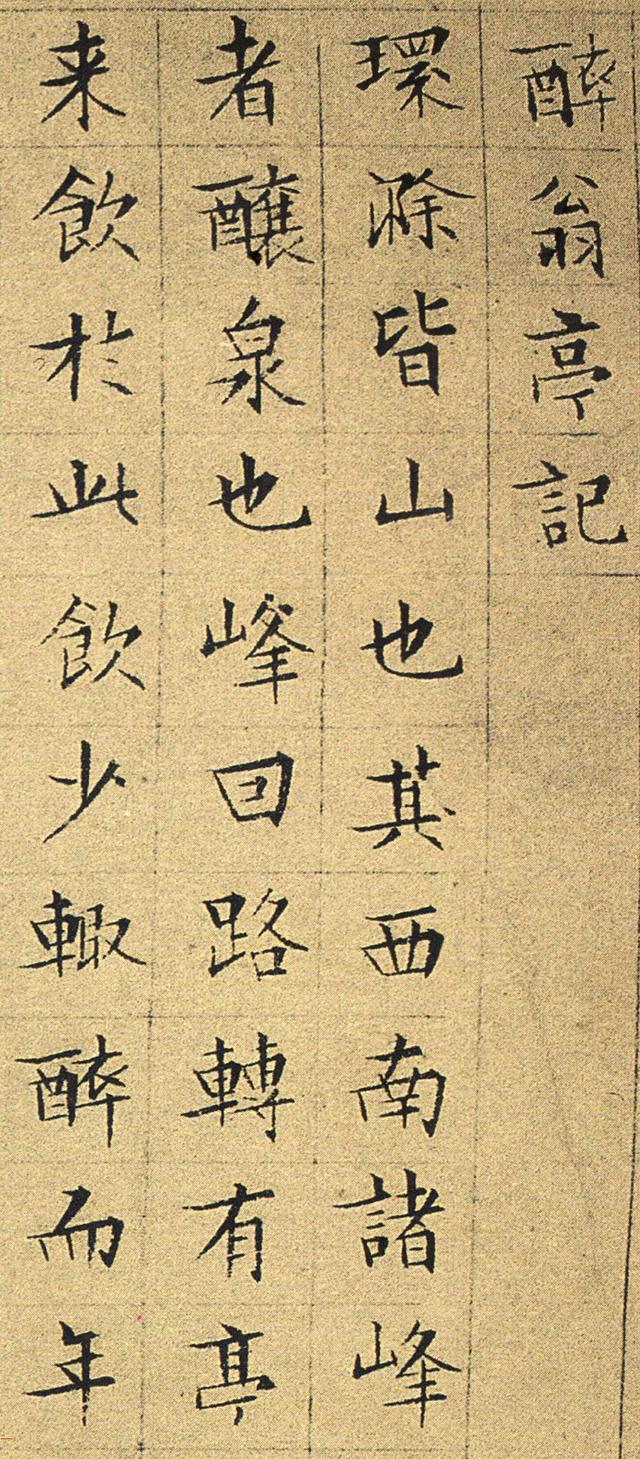 醉翁亭記
環滁皆山也其西南諸峰
者釀泉也峰回路轉有亭
来飲於此飲少輙醉而年